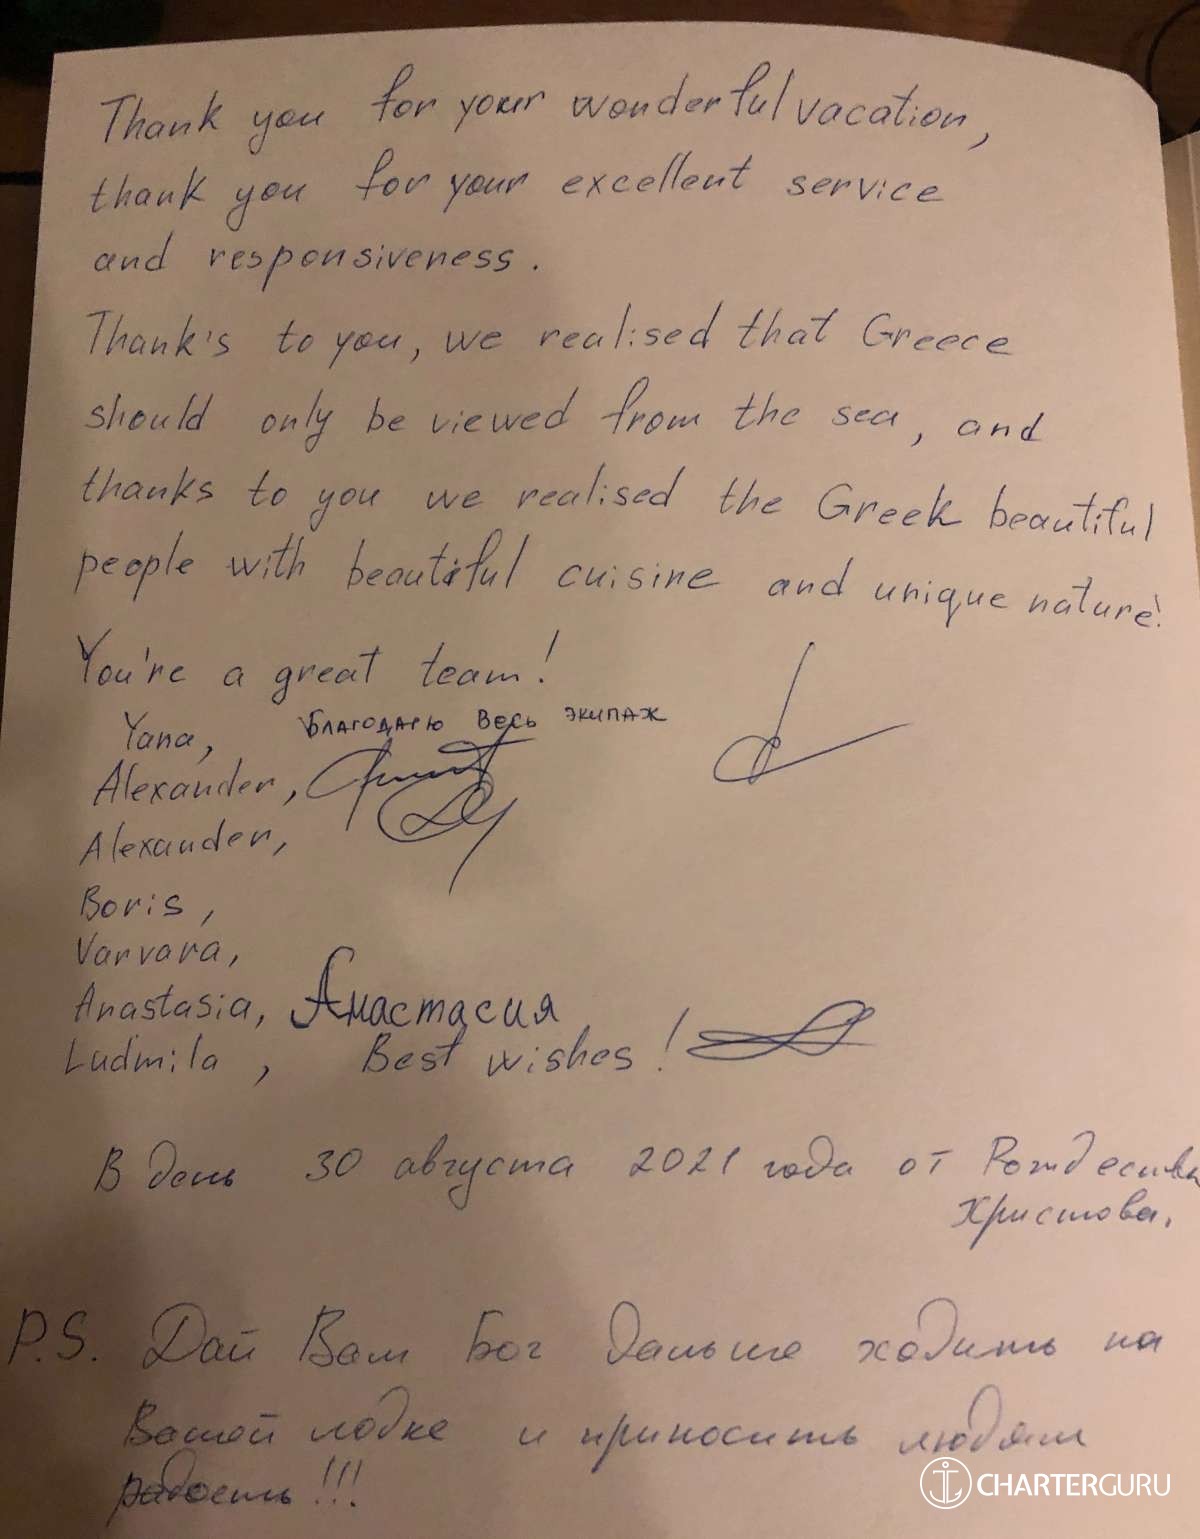 Thank you for your wonderful vacation,
thank you for your excellent service
and responsiveness.
Thank's to you, we realised that Greece
should only be viewed from the sea, and
thanks to you we realised the Greek beautiful
people with beautiful cuisine and unique nature!
You're a great team!
Yana, Благодарю весь экипаж
Alexander,
Alexander,
Boris,
Varvara,
Anastasia, Анастасия
Ludmila, Best wishes!
В день 30 августа 2021 года от Рождества
Христова.
P.S. Дай Вам Бог дальше ходить на
Вашей лодке и приносить людям
радость!!!
CHARTERGURU